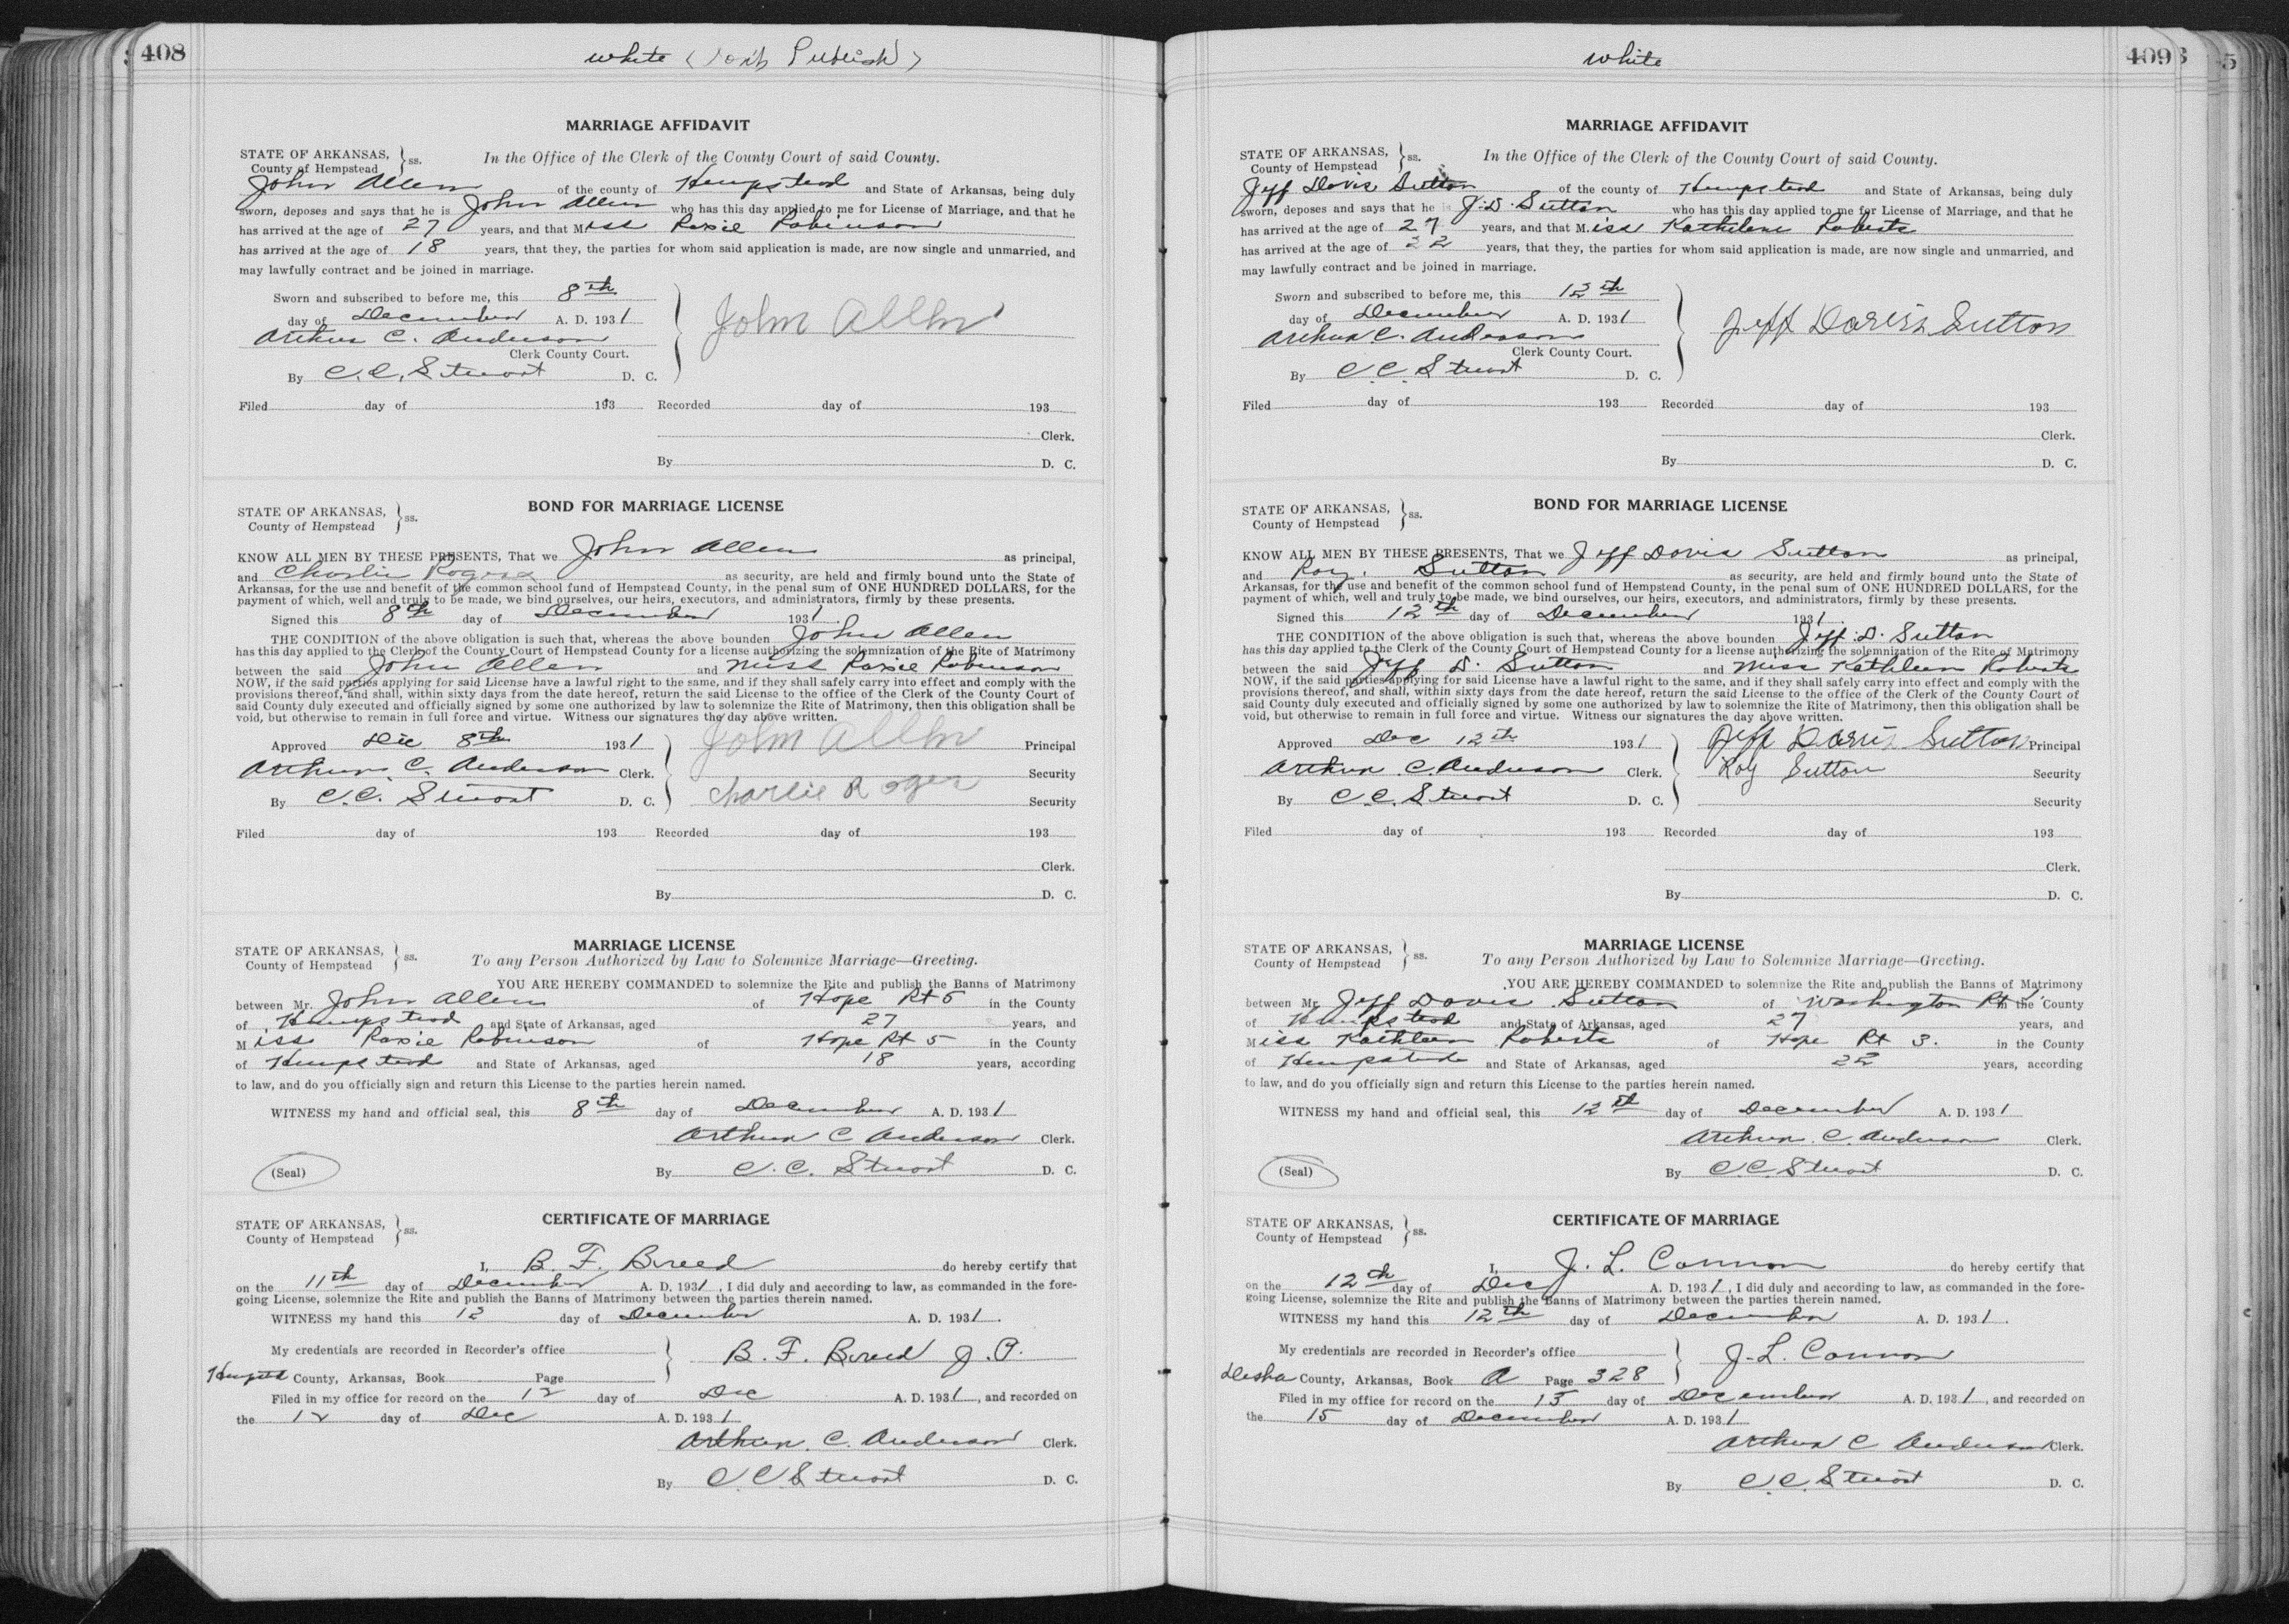 408
white (Don't Publish)
MARRIAGE AFFIDAVIT
STATE OF ARKANSAS, } ss.
County of Hempstead
In the Office of the Clerk of the County Court of said County.
John Allen of the county of Hempstead and State of Arkansas, being duly
sworn, deposes and says that he is John Allen who has this day applied to me for License of Marriage, and that he
has arrived at the age of 27 years, and that Miss Roxie Robinson
has arrived at the age of 18 years, that they, the parties for whom said application is made, are now single and unmarried, and
may lawfully contract and be joined in marriage.
Sworn and subscribed to before me, this 8th
day of December A. D. 1931
John Allen
Arthur C. Anderson
Clerk County Court.
By C. C. Stuart D. C.
Filed day of 193 Recorded day of 193
Clerk.
By D. C.
BOND FOR MARRIAGE LICENSE
STATE OF ARKANSAS, } ss.
County of Hempstead
KNOW ALL MEN BY THESE PRESENTS, That we John Allen as principal,
and Charlie Rogers as security, are held and firmly bound unto the State of
Arkansas, for the use and benefit of the common school fund of Hempstead County, in the penal sum of ONE HUNDRED DOLLARS, for the
payment of which, well and truly to be made, we bind ourselves, our heirs, executors, and administrators, firmly by these presents.
Signed this 8th day of December 1931.
THE CONDITION of the above obligation is such that, whereas the above bounden John Allen
has this day applied to the Clerk of the County Court of Hempstead County for a license authorizing the solemnization of the Rite of Matrimony
between the said John Allen and Miss Roxie Robinson
NOW, if the said parties applying for said License have a lawful right to the same, and if they shall safely carry into effect and comply with the
provisions thereof, and shall, within sixty days from the date hereof, return the said License to the office of the Clerk of the County Court of
said County duly executed and officially signed by some one authorized by law to solemnize the Rite of Matrimony, then this obligation shall be
void, but otherwise to remain in full force and virtue. Witness our signatures the day above written.
Approved Dec 8th 1931 John Allen Principal
Arthur C. Anderson Clerk. Security
By C. C. Stuart D. C. Charlie Roger Security
Filed day of 193 Recorded day of 193
Clerk.
By D. C.
MARRIAGE LICENSE
STATE OF ARKANSAS, } ss.
County of Hempstead
To any Person Authorized by Law to Solemnize Marriage—Greeting.
YOU ARE HEREBY COMMANDED to solemnize the Rite and publish the Banns of Matrimony
between Mr. John Allen of Hope Rt 5 in the County
of Hempstead and State of Arkansas, aged 27 years, and
Miss Roxie Robinson of Hope Rt 5 in the County
of Hempstead and State of Arkansas, aged 18 years, according
to law, and do you officially sign and return this License to the parties herein named.
WITNESS my hand and official seal, this 8th day of December A. D. 1931
Arthur C Anderson Clerk.
(Seal) By C. C. Stuart D. C.
CERTIFICATE OF MARRIAGE
STATE OF ARKANSAS, } ss.
County of Hempstead
I, B. F. Breed do hereby certify that
on the 11th day of December A. D. 1931, I did duly and according to law, as commanded in the fore-
going License, solemnize the Rite and publish the Banns of Matrimony between the parties therein named.
WITNESS my hand this 12 day of December A. D. 1931.
My credentials are recorded in Recorder's office
B. F. Breed J. P.
County, Arkansas, Book Page
Filed in my office for record on the 12 day of Dec A. D. 1931, and recorded on
the 12 day of Dec A. D. 1931
Arthur C. Anderson Clerk.
By C C Stuart D. C.
409
white
MARRIAGE AFFIDAVIT
STATE OF ARKANSAS, } ss.
County of Hempstead
In the Office of the Clerk of the County Court of said County.
Jeff Davis Sutton of the county of Hempstead and State of Arkansas, being duly
sworn, deposes and says that he is J. D. Sutton who has this day applied to me for License of Marriage, and that he
has arrived at the age of 27 years, and that Miss Kathilene Roberts
has arrived at the age of 22 years, that they, the parties for whom said application is made, are now single and unmarried, and
may lawfully contract and be joined in marriage.
Sworn and subscribed to before me, this 12th
day of December A. D. 1931
Jeff Davis Sutton
Arthur C. Anderson
Clerk County Court.
By C. C. Stuart D. C.
Filed day of 193 Recorded day of 193
Clerk.
By D. C.
BOND FOR MARRIAGE LICENSE
STATE OF ARKANSAS, } ss.
County of Hempstead
KNOW ALL MEN BY THESE PRESENTS, That we Jeff Davis Sutton as principal,
and Roy. Sutton as security, are held and firmly bound unto the State of
Arkansas, for the use and benefit of the common school fund of Hempstead County, in the penal sum of ONE HUNDRED DOLLARS, for the
payment of which, well and truly to be made, we bind ourselves, our heirs, executors, and administrators, firmly by these presents.
Signed this 12th day of December 1931.
THE CONDITION of the above obligation is such that, whereas the above bounden Jeff. D. Sutton
has this day applied to the Clerk of the County Court of Hempstead County for a license authorizing the solemnization of the Rite of Matrimony
between the said Jeff D. Sutton and Miss Kathleen Roberts
NOW, if the said parties applying for said License have a lawful right to the same, and if they shall safely carry into effect and comply with the
provisions thereof, and shall, within sixty days from the date hereof, return the said License to the office of the Clerk of the County Court of
said County duly executed and officially signed by some one authorized by law to solemnize the Rite of Matrimony, then this obligation shall be
void, but otherwise to remain in full force and virtue. Witness our signatures the day above written.
Approved Dec 12th 1931 Jeff Davis Sutton Principal
Arthur C. Anderson Clerk. Roy Sutton Security
By C. C. Stuart D. C. Security
Filed day of 193 Recorded day of 193
Clerk.
By D. C.
MARRIAGE LICENSE
STATE OF ARKANSAS, } ss.
County of Hempstead
To any Person Authorized by Law to Solemnize Marriage—Greeting.
YOU ARE HEREBY COMMANDED to solemnize the Rite and publish the Banns of Matrimony
between Mr. Jeff Davis Sutton of Washington Rt 1. in the County
of Hempstead and State of Arkansas, aged 27 years, and
Miss Kathleen Roberts of Hope Rt 3. in the County
of Hempstead and State of Arkansas, aged 22 years, according
to law, and do you officially sign and return this License to the parties herein named.
WITNESS my hand and official seal, this 12th day of December A. D. 1931
Arthur C. Anderson Clerk.
(Seal) By C C Stuart D. C.
CERTIFICATE OF MARRIAGE
STATE OF ARKANSAS, } ss.
County of Hempstead
I, J. L. Cannon do hereby certify that
on the 12th day of Dec A. D. 1931, I did duly and according to law, as commanded in the fore-
going License, solemnize the Rite and publish the Banns of Matrimony between the parties therein named.
WITNESS my hand this 12th day of December A. D. 1931.
My credentials are recorded in Recorder's office
J. L. Cannon
Desha County, Arkansas, Book A Page 328
Filed in my office for record on the 15 day of December A. D. 1931, and recorded on
the 15 day of December A. D. 1931
Arthur C Anderson Clerk.
By C. C. Stuart D. C.